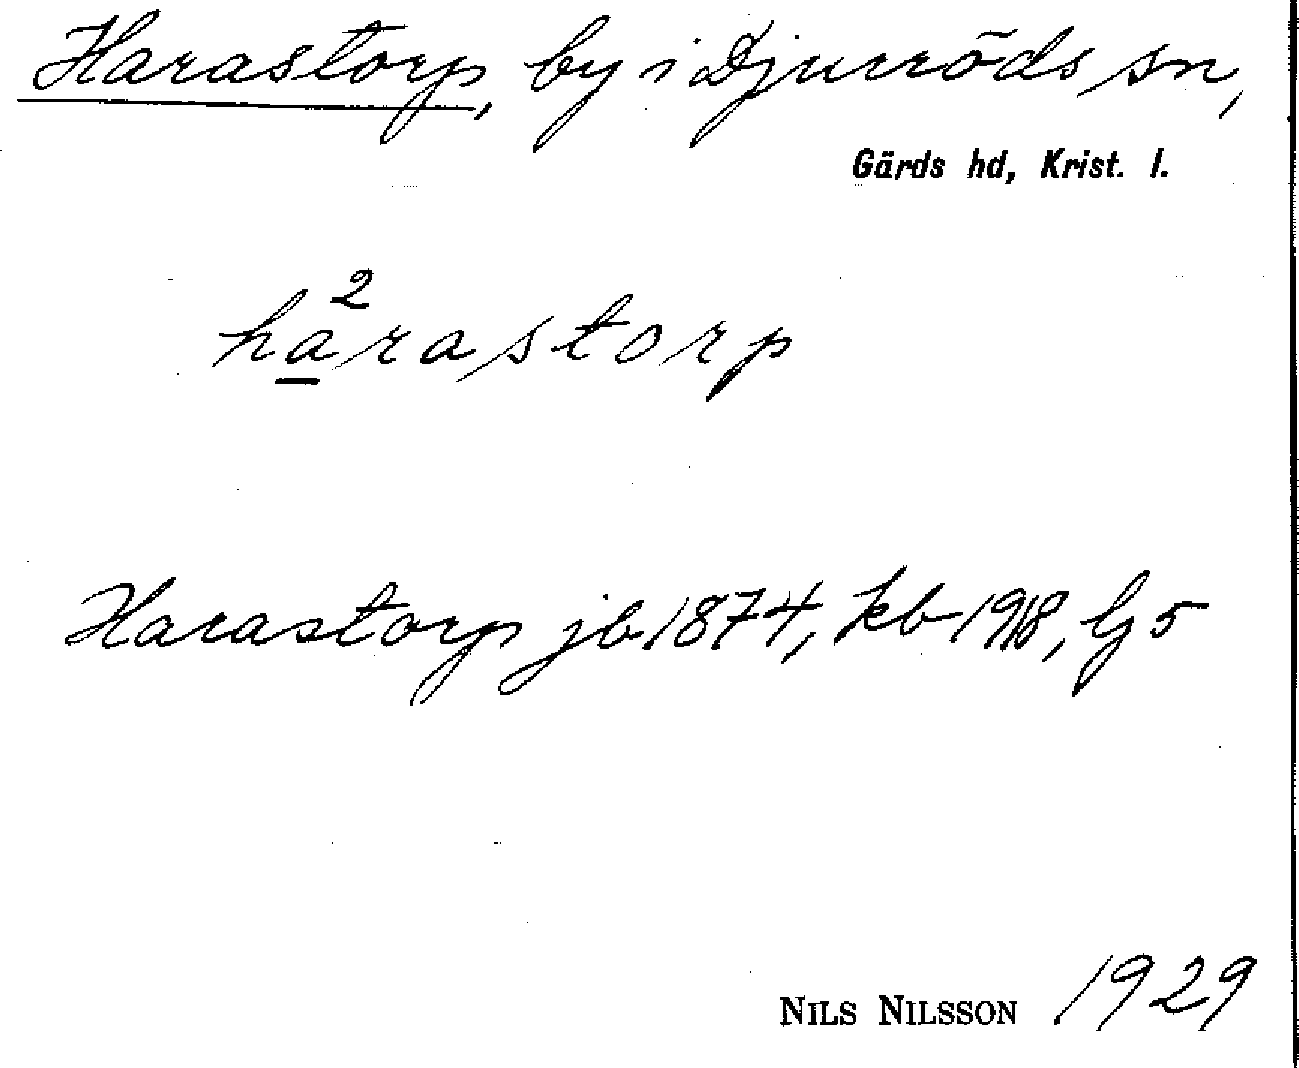 Harastorp, by i Djurröds sn,
Gärds hd, Krist. l.
ha²rastorp
Harastorp jb 1874, kb 1918, Gj 5
NILS NILSSON 1929